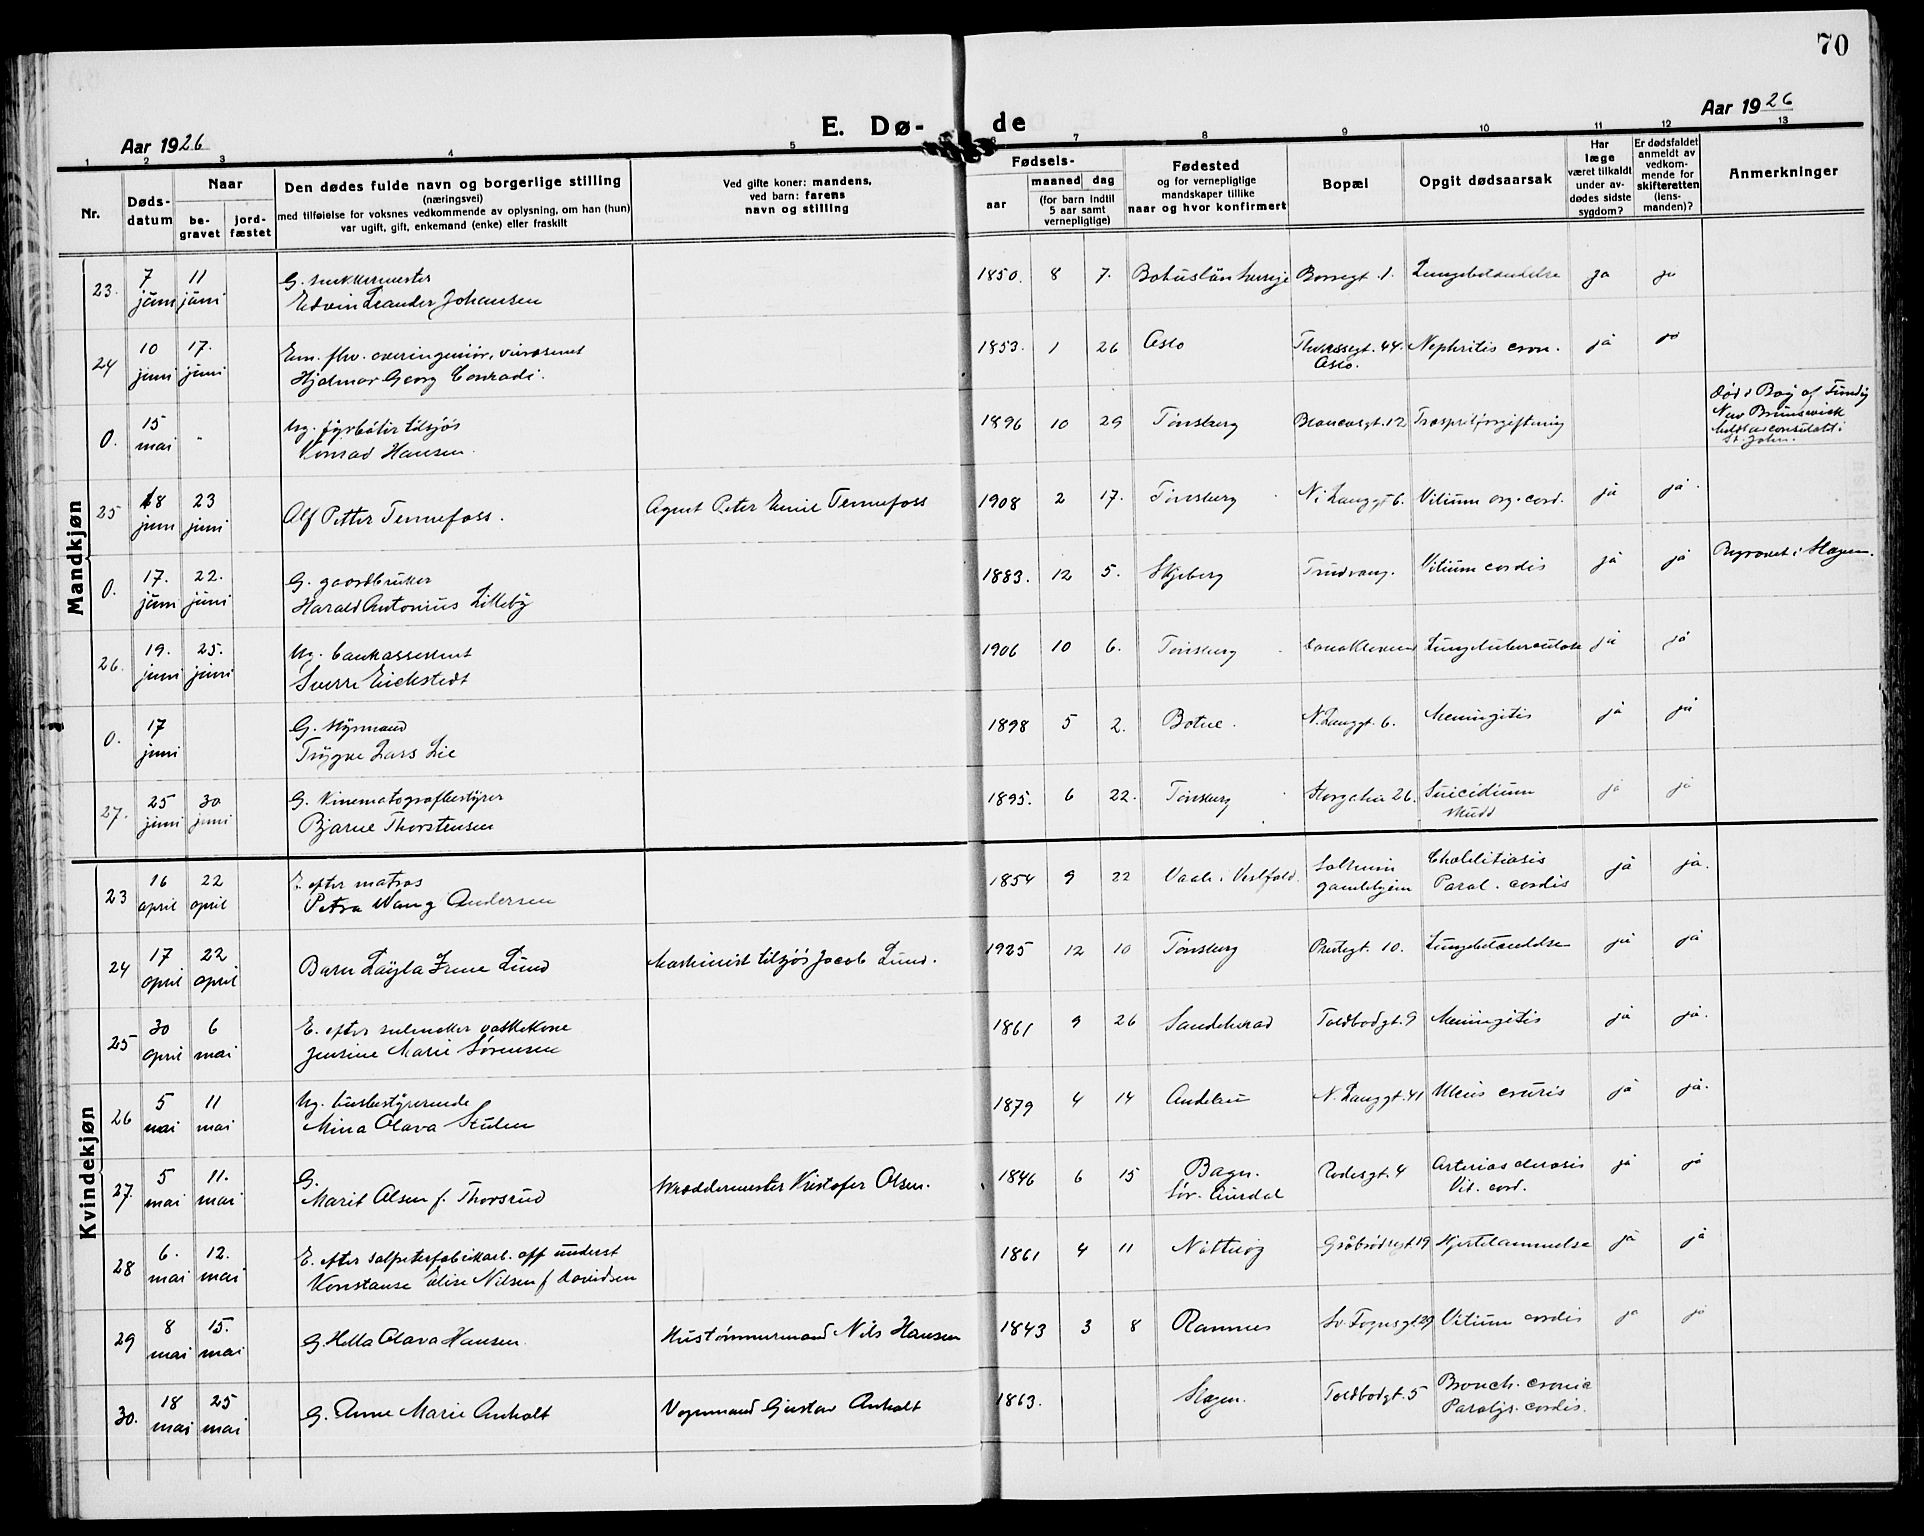 70
Aar 1926
E. Dø- de
Aar 1926
1 2 3 4 5 6 7 8 9 10 11 12 13
Nr.
Døds-
datum
Naar
be-
gravet
jord-
fæstet
Den dødes fulde navn og borgerlige stilling
(næringsvei)
med tilføielse for voksnes vedkommende av oplysning, om han (hun)
var ugift, gift, enkemand (enke) eller fraskilt
Ved gifte koner: mandens,
ved barn: farens
navn og stilling
Fødsels-
aar
maaned dag
(for barn indtil
5 aar samt
vernepligtige)
Fødested
og for vernepligtige
mandskaper tillike
naar og hvor konfirmert
Bopæl
Opgit dødsaarsak
Har
læge
været tilkaldt
under av-
dødes sidste
sygdom?
Er dødsfaldet
anmeldt av
vedkom-
mende for
skifteretten
(lens-
manden)?
Anmerkninger
Mandkjøn
23. 7 juni 11 juni G. snekkermester
Edvin Leander Johansen 1850. 8 7. Bohuslän Sverige 1. Lungebetændelse ja ja
24 10 juni 17. juni Em. fhv. overingeniør, 
Hjalmar Georg Conradi. 1853. 1 26 Oslo 44. Oslo. Nephritis cron. ja ja
0. 15 mai Ug. fyrbøter tilsjøs
Konrad Hansen. 1896 10 29 Tønsberg 12 Træspritforgiftning Død i Bay of Fundy
New Brunswick
St. John.
25 18 juni 23 juni Alf Petter Tennefoss. Agent Peter Emil Tennefoss 1908 2 17. Tønsberg N. Langgt 6. Vitium org. cord. ja ja.
0. 17. juni 22. juni G. gaardbruker
Harald Antonius Lilleby 1883. 12 5. Skjeberg Trudvang. Vitium cordis ja ja Begravet i Slagen.
26. 19. juni 25. juni Ug. bankassistent
Sverre Eickstedt 1906 10 6. Tønsberg Lungetuberculose ja ja
0. 17 juni G. styrmand
Trygve Lars Lie 1898 5 2. Botne. N. Langgt. 6. Meningitis ja ja
27. 25 juni 30 juni G. Kinematografbestyrer
Bjarne Thorstensen 1895. 6 22. Tønsberg Storgaten 26. Suicidium
skudd ja ja
Kvindekjøn
23 16 april 22 april E. efter matros
Petra Wang Andersen 1854 9 22 Vaale i Vestfold. Solheim
gamlehjem Cholelitiasis
Paral. cordis ja ja.
24 17 april 22 april Barn Layla Irene Lund Maskinist tilsjøs Jacob Lund. 1925 12 10 Tønsberg Prestegt. 10. Lungebetændelse ja ja
25 30 april 6 mai E. efter vaskekone
Jensine Marie Sørensen 1861 9 26 Sandeherad Toldbodgt. 9 Meningitis ja ja.
26 5 mai 11 mai Ug. husbestyrerinde
Mina Olava Stulen 1879 4 14 Andebu N. Langgt. 41 Ulcus cruris ja ja.
27. 5 mai 11. mai G.
Marit Olsen f. Thorsrud Skræddermester Kristofer Olsen. 1846 6 15 Bagn.
Sør. Aurdal Rodesgt. 4 Arteriosclerosis
Vit. cord. ja ja
28 6. mai 12. mai E. efter salpeterfabrikarb. off underst
Konstanse Elise Nilsen f. Davidsen 1861 4 11 Nøtterøy Gråbrødregt. 19 Hjertelammelse ja ja
29 8 mai 15. mai G. Hella Olava Hansen. Hustømmermand Nils Hansen 1843 3 8 Ramnes Sv. Foynsgt. 29 Vitium cordis ja ja
30. 18 mai 25 mai G. Anne Marie Anholt Vognmand Gustav Anholt 1863. Slagen. Toldbodgt. 5 Bronch. cronic
Paralys. cordis.